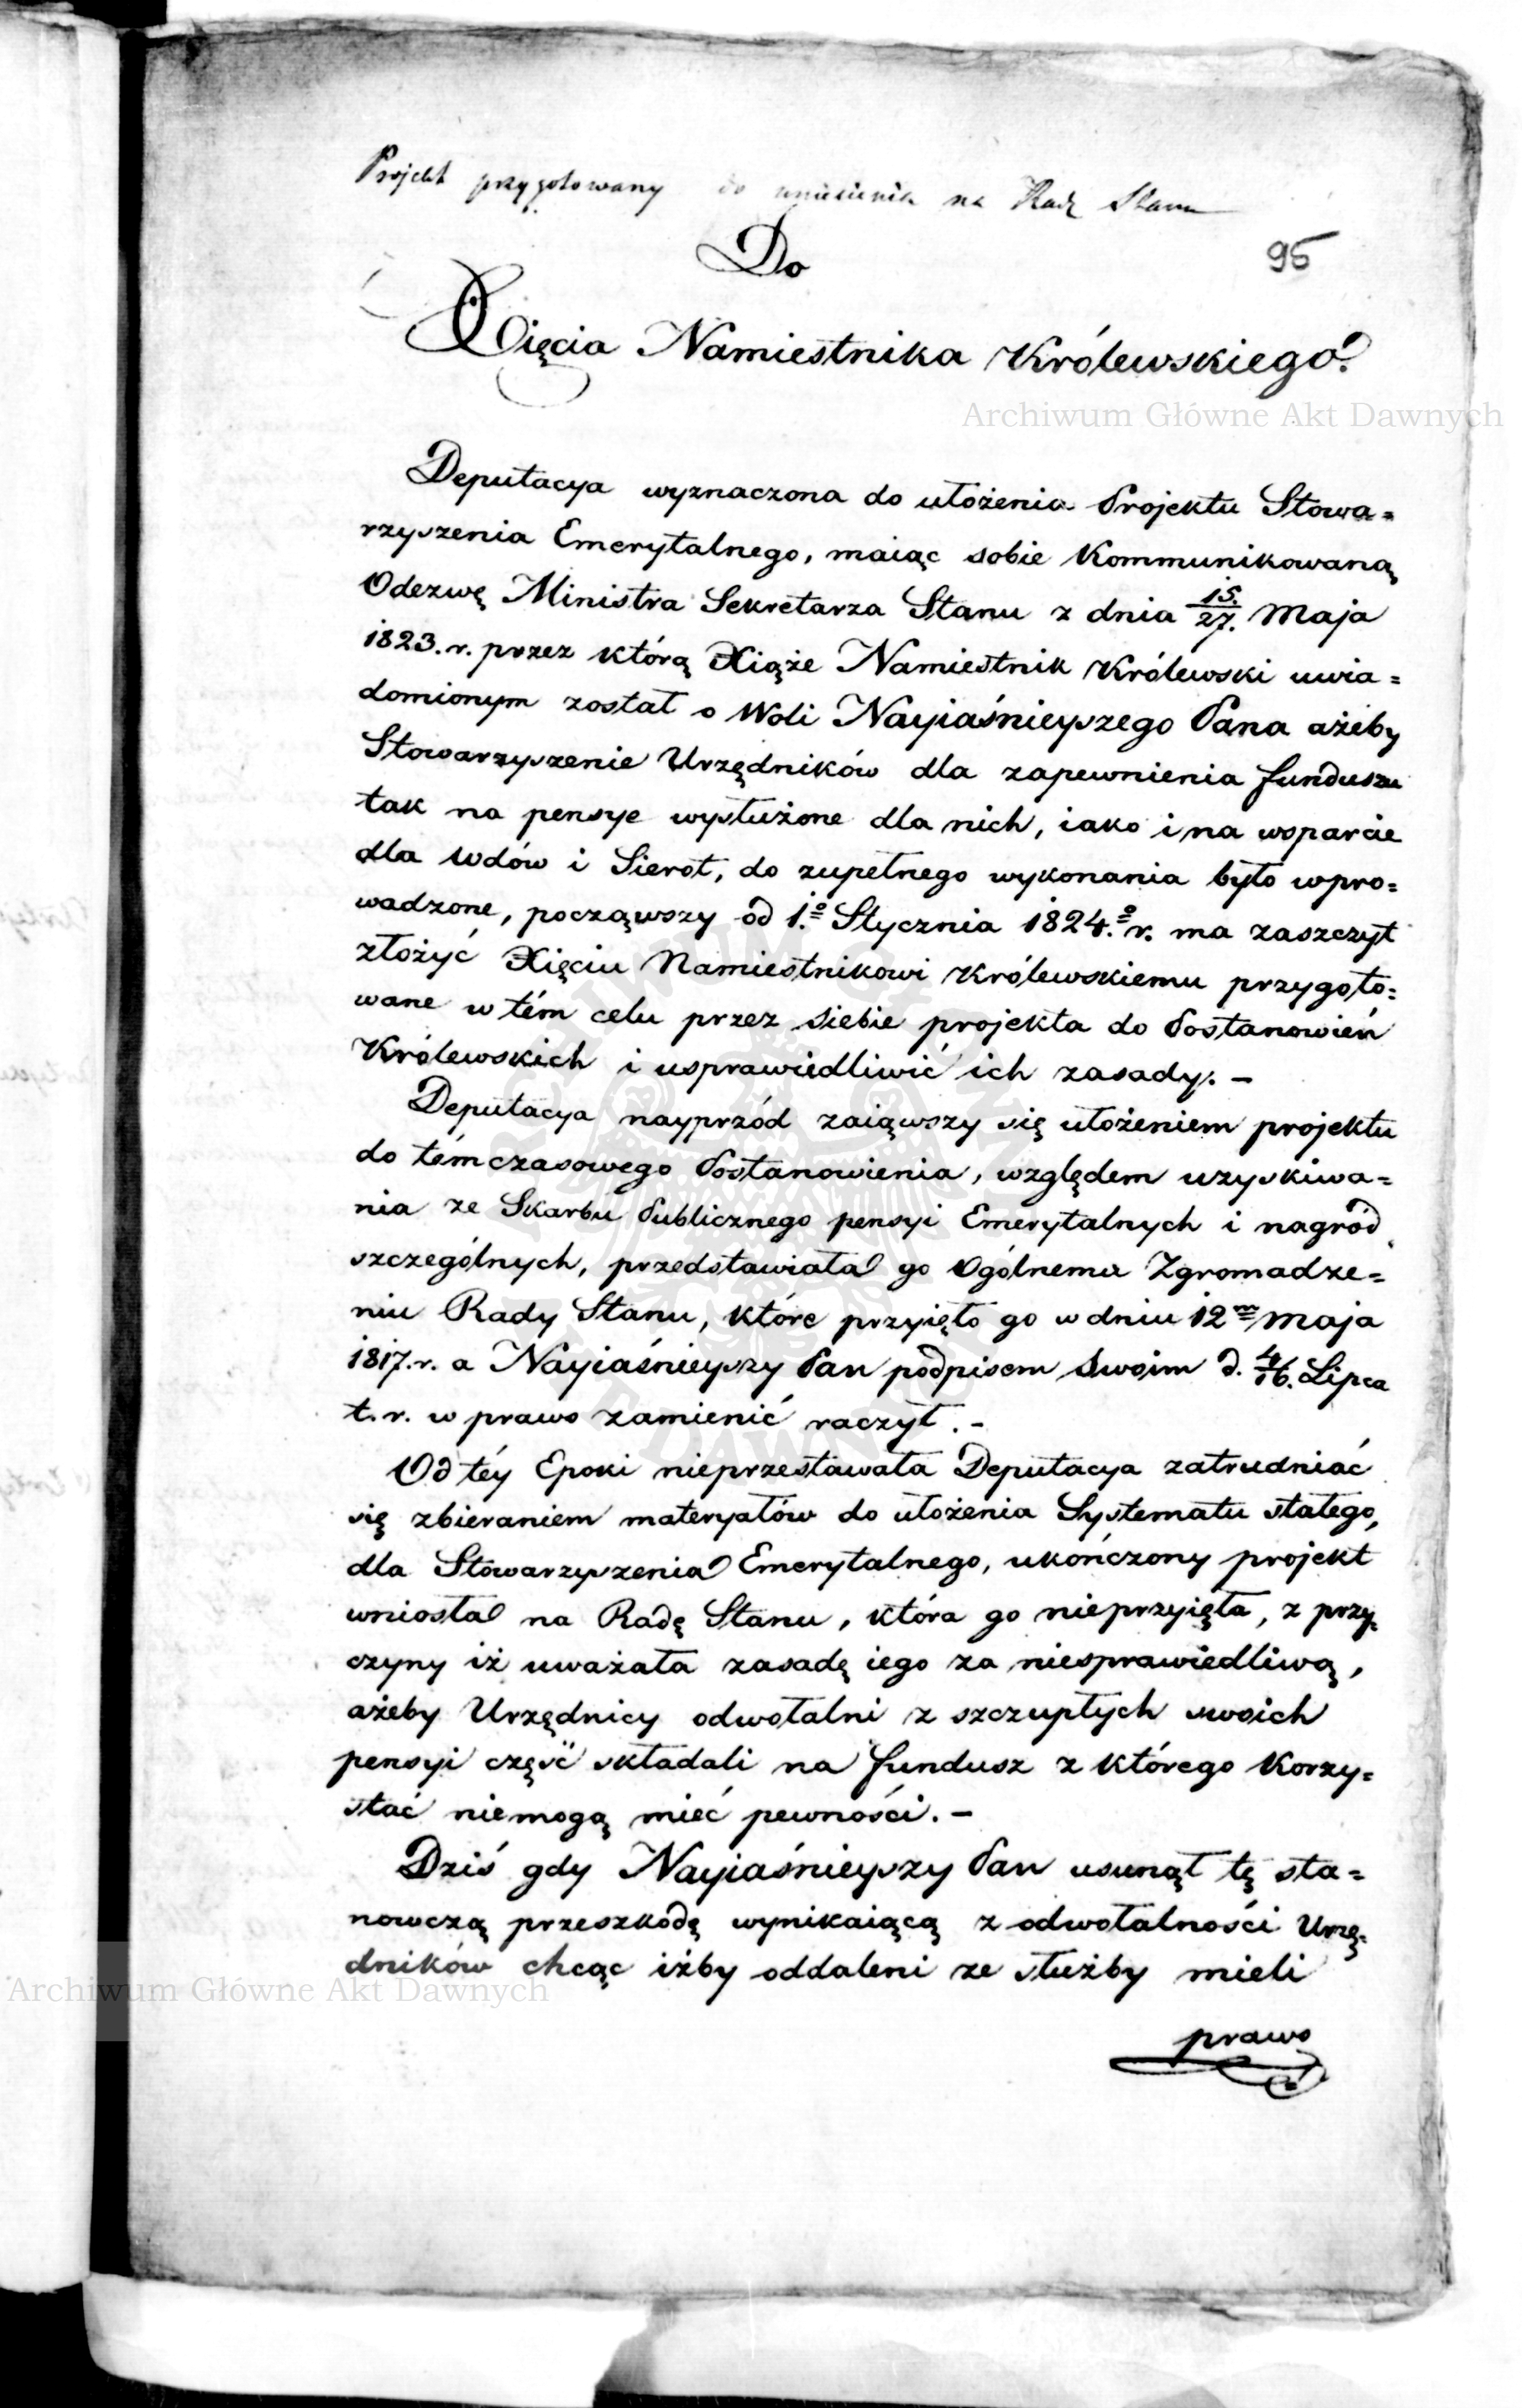 Projekt przygotowany do wniesienia na Radę Stanu
Do
95
Xięcia Namiestnika Królewskiego.
Archiwum Główne Akt Dawnych
Deputacya wyznaczona do ułożenia Projektu Stowa=
rzyszenia Emerytalnego, maiąc sobie kommunikowaną
Odezwę Ministra Sekretarza Stanu z dnia 15/27. Maja
1823. r. przez którą Xiąże Namiestnik Królewski uwia=
domionym został o Woli Nayiaśnieyszego Pana ażeby
Stowarzyszenie Urzędników dla zapewnienia funduszu
tak na pensye wysłużone dla nich, iako i na wsparcie
dla Wdów i Sierot, do zupełnego wykonania było wpro=
wadzone, począwszy od 1.º Stycznia 1824.º r. ma zaszczyt
złożyć Xięciu Namiestnikowi Królewskiemu przygoto=
wane w tém celu przez siebie projekta do Postanowień
Królewskich i usprawiedliwić ich zasady. –
Deputacya nayprzód zaiąwszy się ułożeniem projektu
do témczasowego Postanowienia, względem uzyskiwa=
nia ze Skarbu Publicznego pensyi Emerytalnych i nagród
szczególnych, przedstawiała go Ogólnemu Zgromadze=
niu Rady Stanu, które przyięło go w dniu 12m Maja
1817. r. a Nayiaśnieyszy Pan podpisem Swoim d. 4/16. Lipca
t. r. w prawo zamienić raczył. –
Od téy Epoki nieprzestawała Deputacya zatrudniać
się zbieraniem materyałów do ułożenia Systematu stałego,
dla Stowarzyszenia Emerytalnego, ukończony projekt
wniosła na Radę Stanu, która go nieprzyięła, z przy=
czyny iż uważała zasadę iego za niesprawiedliwą,
ażeby Urzędnicy odwołalni z szczupłych swoich
pensyi część składali na fundusz z którego korzy=
stać niemogą mieć pewności. –
Dziś gdy Nayiaśnieyszy Pan usunął tę sta=
nowczą przeszkodę wynikaiącą z odwołalności Urzę=
dników chcąc iżby oddaleni ze służby mieli
Archiwum Główne Akt Dawnych
prawo